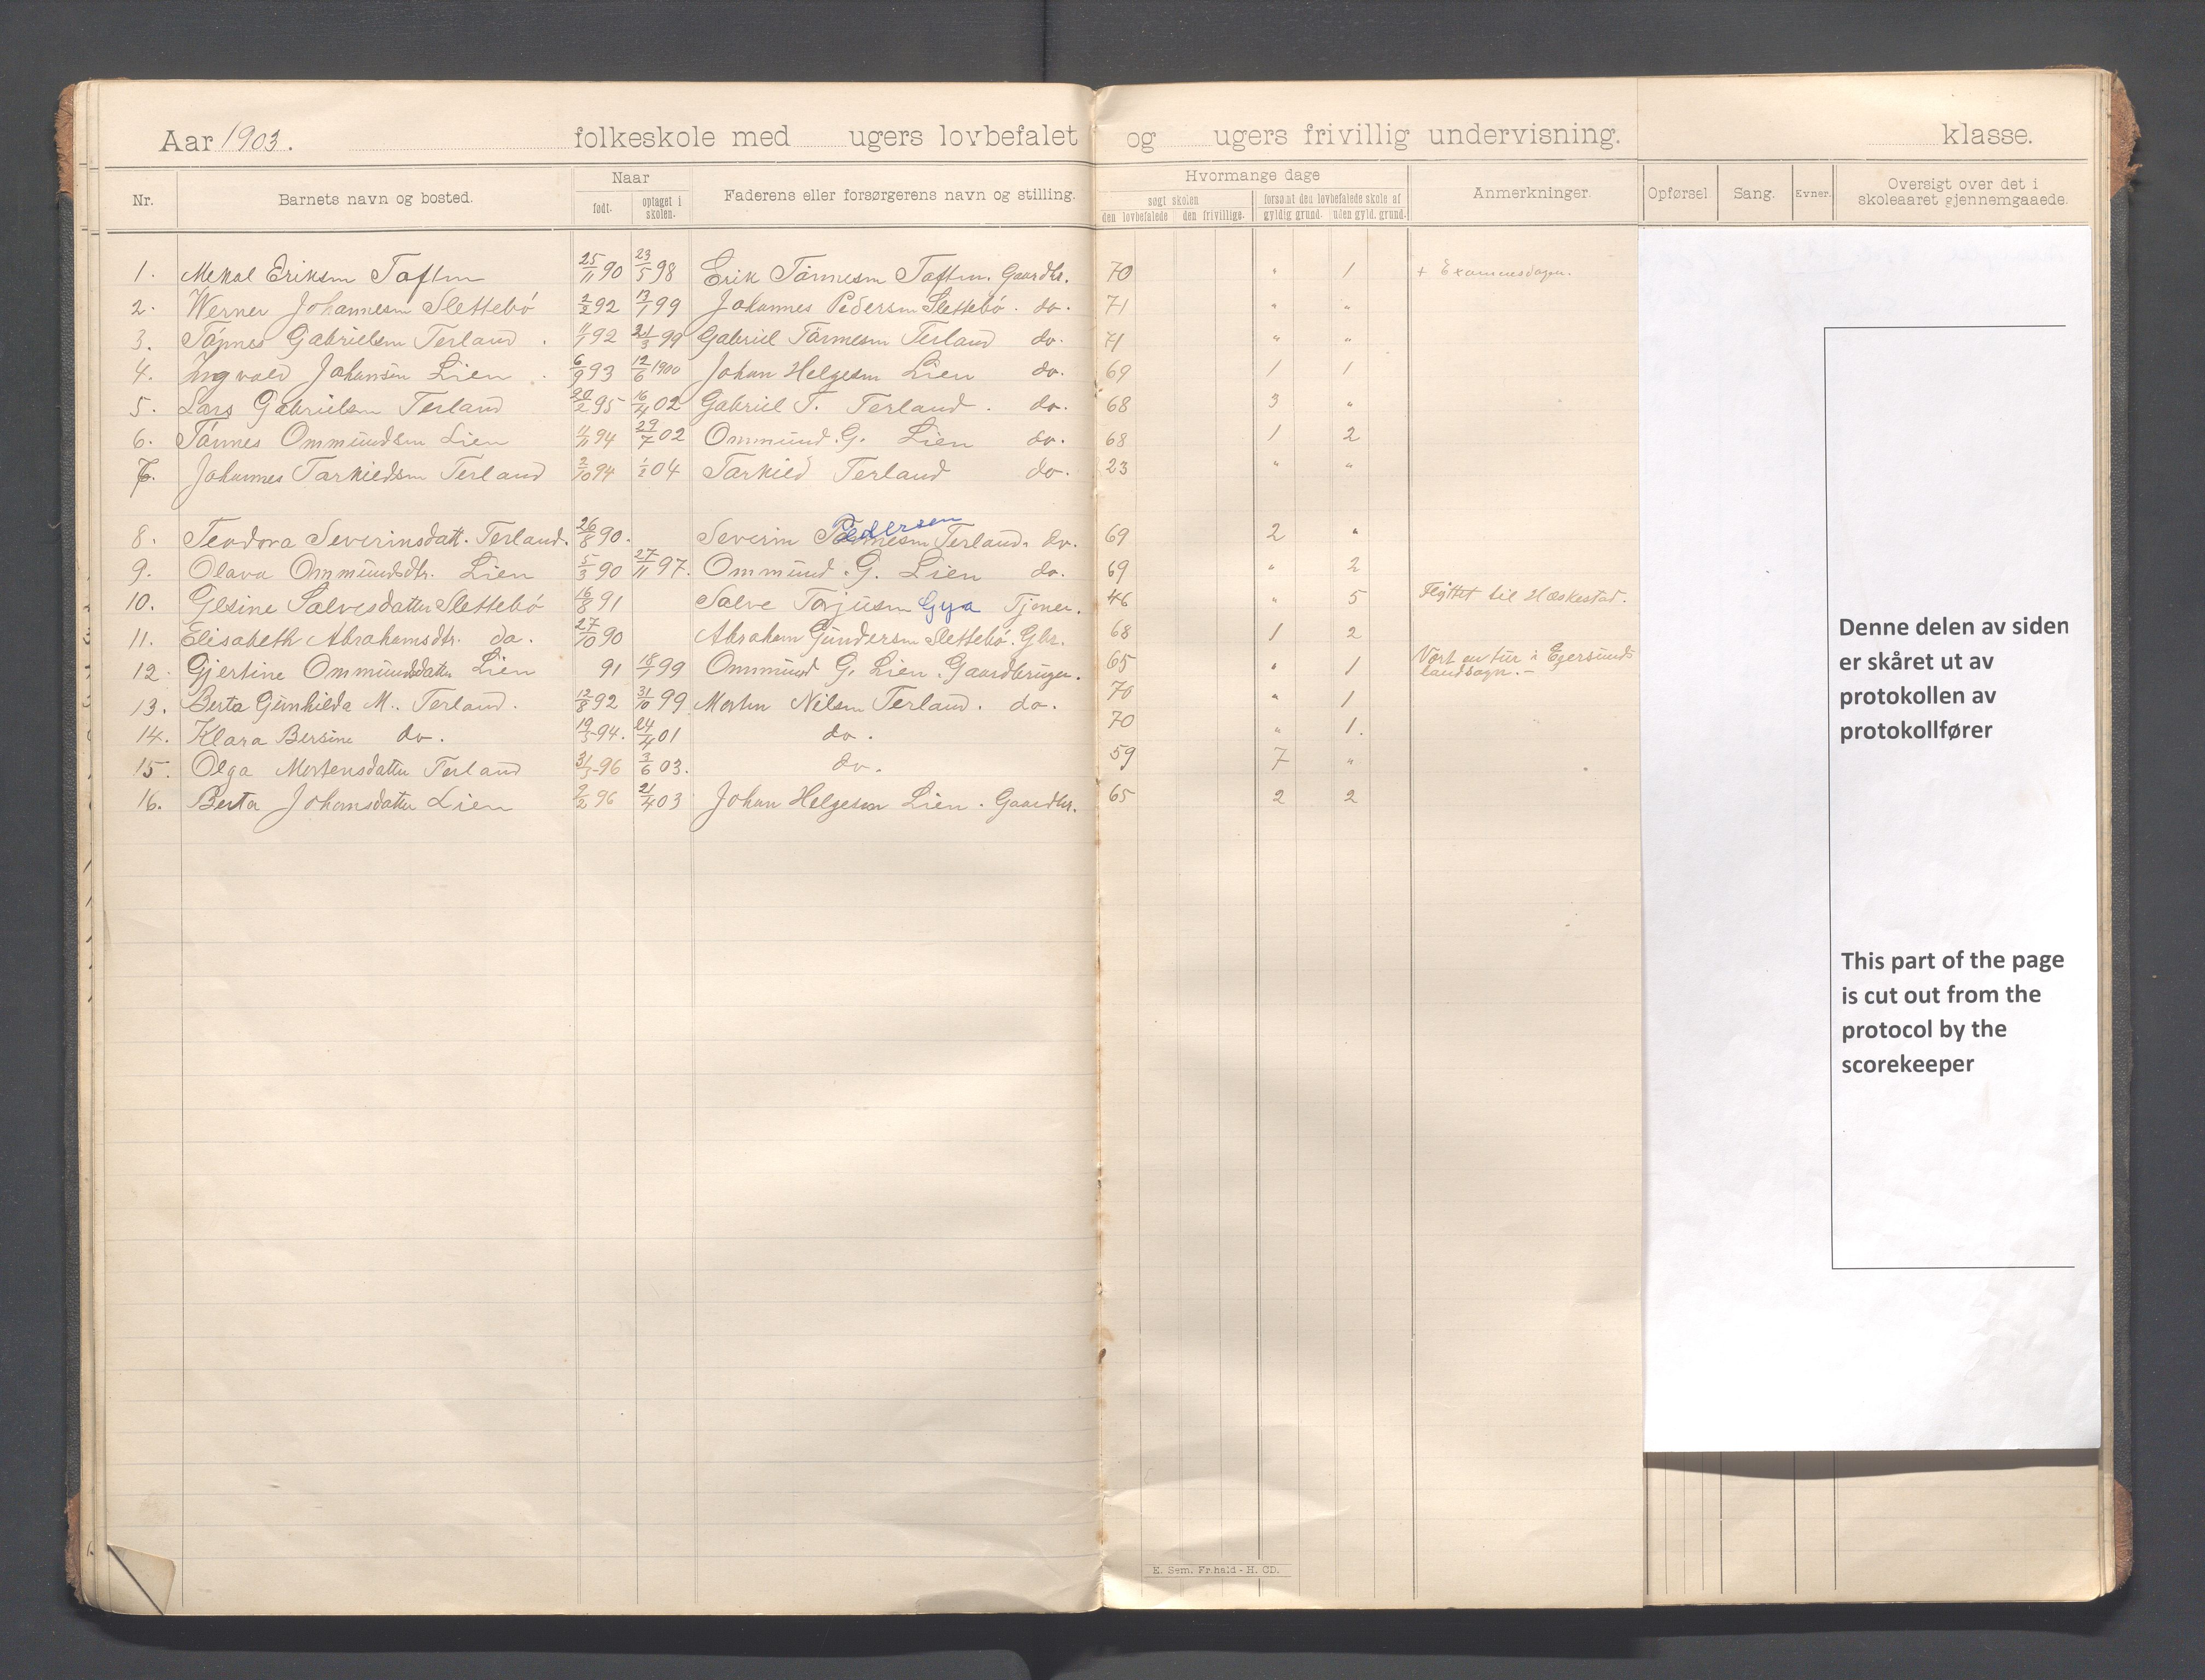 Aar 1903. folkeskole med ugers lovbefalet og ugers frivillig undervisning. klasse.
Nr. Barnets navn og bosted. Naar født. optaget i skolen. Faderens eller forsørgerens navn og stilling. Hvormange dage søgt skolen den lovbefalede den frivillige. forsømt den lovbefalede skole af gyldig grund. uden gyld. grund. Anmerkninger. Opførsel Sang. Evner. Oversigt over det i skoleaaret gjennemgaaede.
1. Mekal Eriksen 25/11 90 23/5 98 Erik Tønnesen Gaardbr. 70 " 1 + Examensdagen.
2. Werner Johannesen Slettebø 2/2 92 13/1 99 Johannes Pedersen Slettebø. do. 71 " "
3. Tønnes Gabrielsen Terland. 92 21/3 99 Gabriel Tønnesen Terland do. 71 " "
4. Ingvald Johansen Lien. 6/9 93 12/6 1900 Johan Helgesen Lien do. 69 1 1
5. Lars Gabrielsen Terland 20/2 95 16/4 02 Gabriel T. Terland. do. 68 3 "
6. Tønnes Ommundsen Lien 11/11 94 29/7 02 Ommund. G. Lien do. 68 1 2
7. Johannes Tarkieldsen Terland 2/10 94 1/2 04 Tarkild Terland do. 23 " "
8. Teodora Severinsdatt. Terland. 26/8 90. Severin Pedersen Terland. do. 69 2 "
9. Olava Ommundsdtr. Lien 5/3 90 27/11 97. Ommund. G. Lien do. 69 " 2
10. Gesine Salvesdatter Slettebø 16/8 91 Salve Torjusen Gya Tjener. 46 " 5 Flyttet til Heskestad.
11. Elisabeth Abrahamsdtr. do. 27/10 90 Abraham Gundersen Slettebø. Gbr. 68 1 2
12. Gjertine Ommundsdatter Lien 91 18/1 99 Ommund G. Lien. Gaardbruger. 65 " 1 Vært en tur i Egersunds landsogn. -
13. Berta Gunhilda M. Terland. 12/8 92 31/10 99 Morten Nilsen Terland. do. 70 " 1
14. Klara Bersine do. 19/5 94. 24/4 01 do. 70 " 1.
15. Olga Mortensdatter Terland 31/3 96 3/6 03. do. 59 7 "
16. Berta Johansdatter Lien 2/2 96 21/4 03 Johan Helgesen Lien. Gaardbr. 65 2 2
E. Sem. Fr.hald - H. CD.
Denne delen av siden
er skåret ut av
protokollen av
protokollfører
This part of the page
is cut out from the
protocol by the
scorekeeper